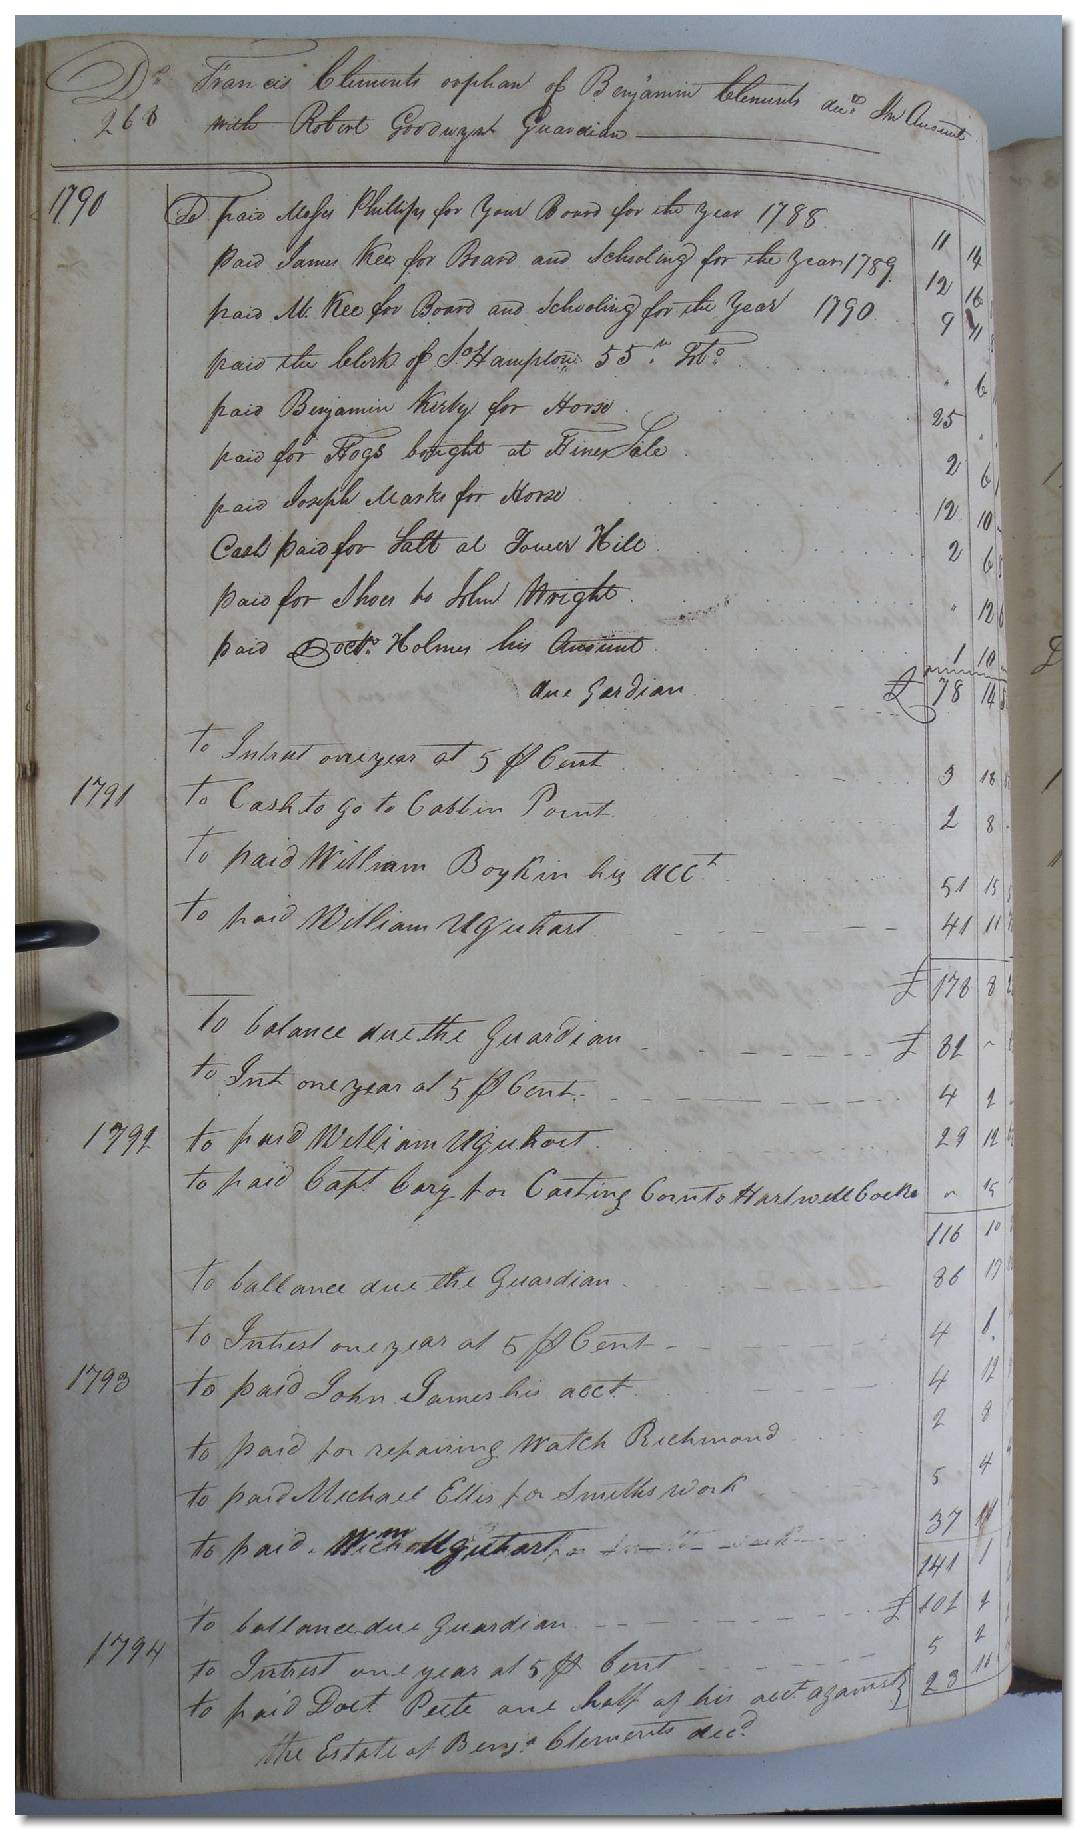 Dr Francis Clements orphan of Benjamin Clements decd In Account
268 with Robert Goodwyn Guardian
1790 To paid Moses Phillips for Your Board for the year 1788 11 14
paid James Kee for Board and Schooling for the Year 1789 12 16
paid M. Kee for Board and Schooling for the Year 1790 9 11
paid the Clerk of So Hampton 55 lb Tobo " 6
paid Benjamin Kirby for Horse 25 "
paid for Hogs bought at Fines Sale 2 6
paid Joseph Marks for Horse 12 10
Cash paid for Salt at Tower Hill 2 6
paid for Shoes to John Wright " 12 6
paid Doctr Holmes his Account 1 10
due Gardian £ 78 14
to Intrest one year at 5 ⅌ Cent 3 18
1791 to Cash to go to Cabbin Point 2 8
to paid William Boykin his acct 51 15
to paid William Uquhart 41 11
£ 178 8
to balance due the Guardian £ 82 "
to Int one year at 5 ⅌ Cent 4 2
1792 to paid William Uquhart 29 12
to paid Capt Cary for Carting Corn to Hartwell Cocke " 15
116 10
to ballance due the Guardian 86 17
to Intrest one year at 5 ⅌ Cent 4
1793 to paid John James his acct 4 12
to paid for repairing Watch Richmond 2 8
to paid Michael Ellis for Smiths work 5 4
to paid Wm Uquhart 37
141 1
to ballance due Guardian £ 102 2
1794 to Intrest one year at 5 ⅌ Cent 5 2
to paid Doct Peete one half of his acct against 23
the Estate of Benja Clements decd